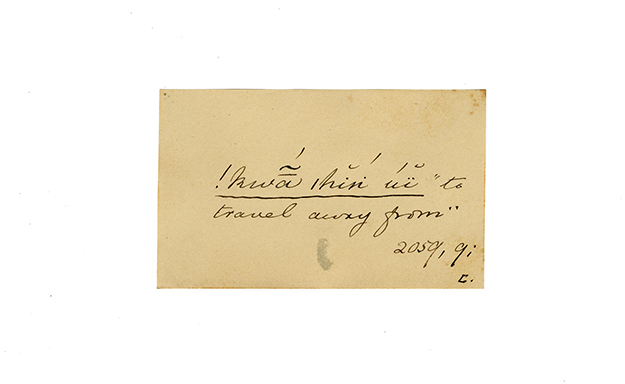 !kwā̃́ |hĭń ú̆ï "to
travel away from"
2059, 9;
L.